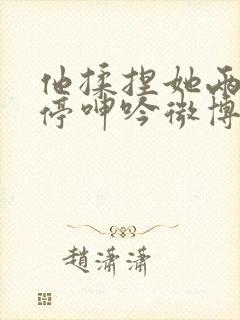 他揉捏她两
停呻吟微博
趙潇潇